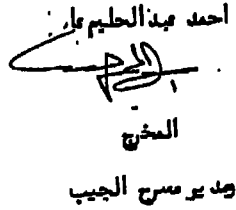 احمد عبد الحليم
المخرج
ومدير مسرح الجيب